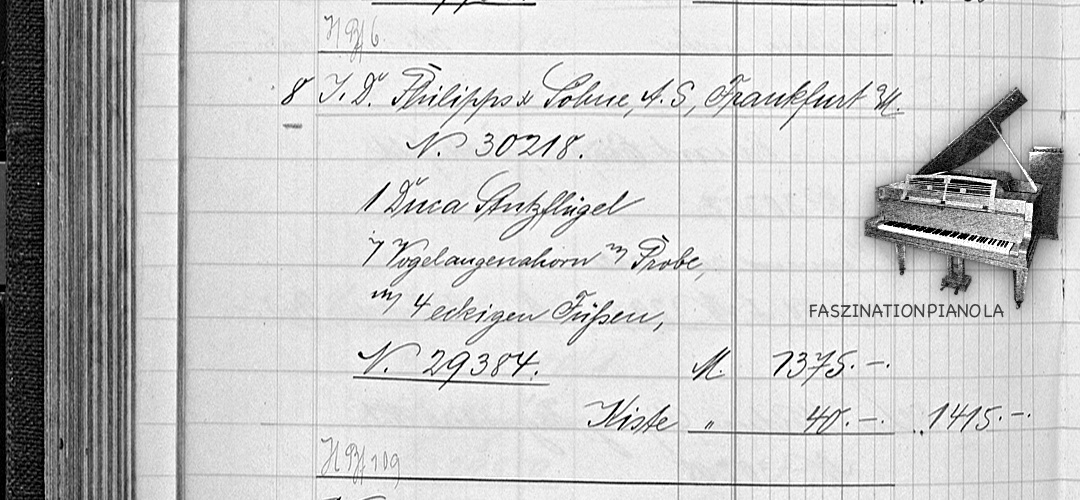 8 J. D. Philipps & Söhne, A. G., Frankfurt a/M.
N. 30218.
1 Duca Stutzflügel
Vogelaugenahorn Probe,
4 eckigen Füßen,
N. 29384. M. 1375.-.
Kiste " 40.-. 1415.-.
FASZINATIONPIANOLA